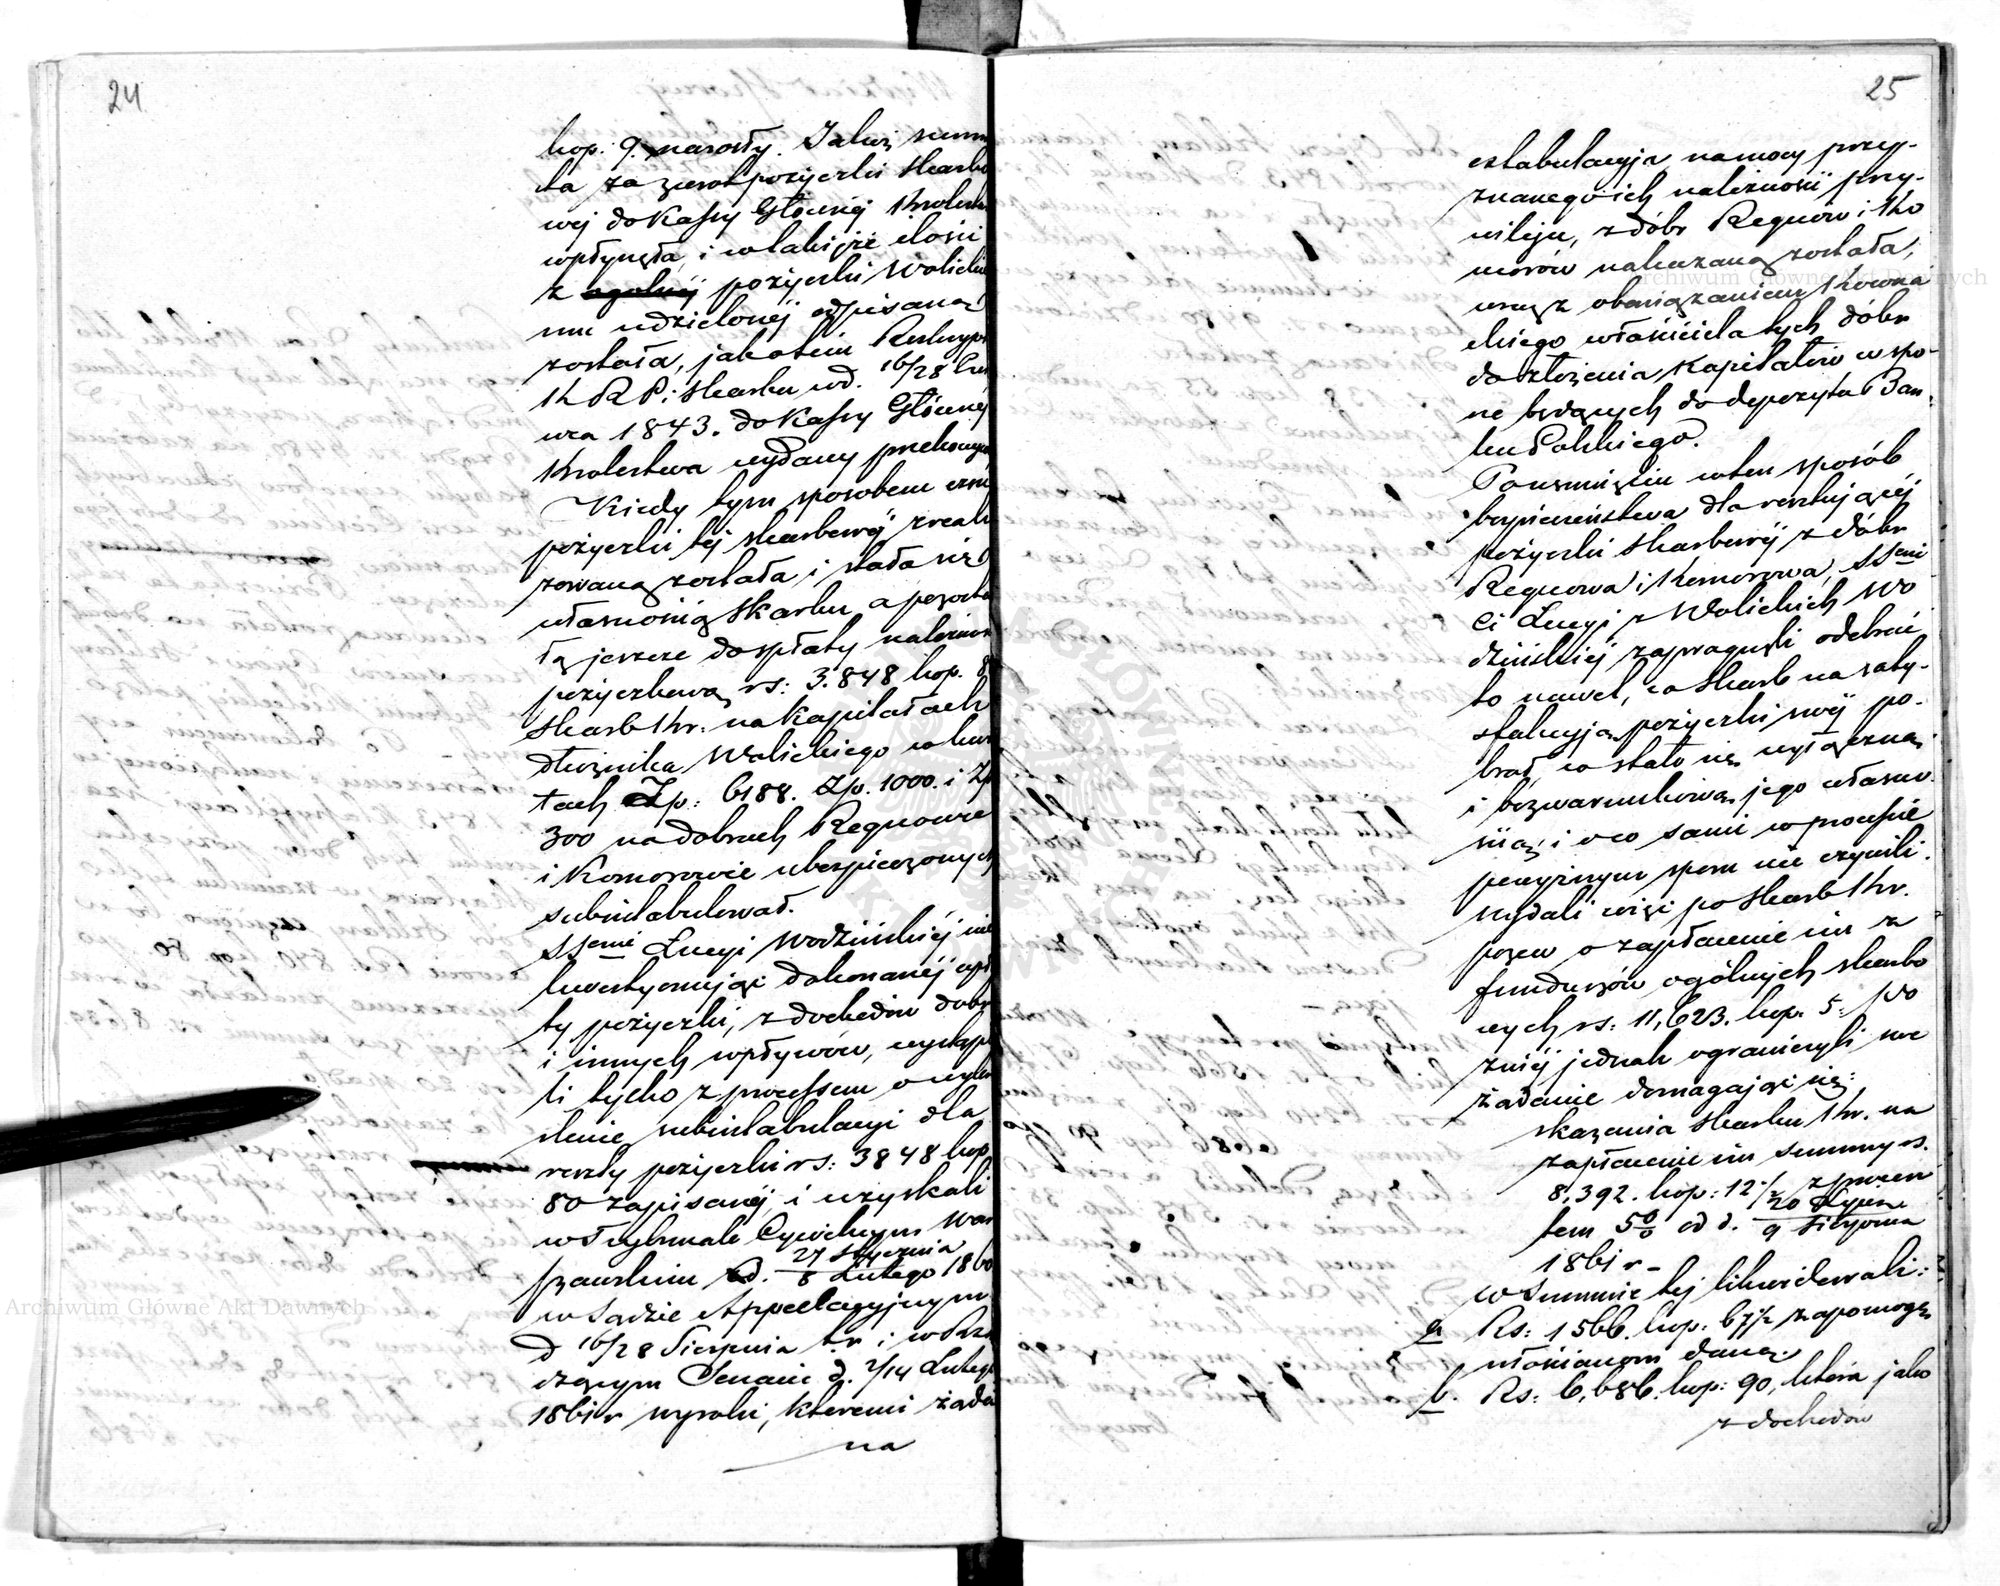 24
kop. 9. narosły. Jakoż summ
ta za zwrot pożyczki skarbo
wej do Kassy Głównej Królest
wpłynęła, i w takiejże ilości
z ogólnej pożyczki Walickie
mu udzielonej odpisaną
została, jak o tem Reskrypt
K R P i Skarbu w d. 16/28 Czer
wca 1843. do Kassy Głównej
Królestwa wydany przekonywa
Kiedy tym sposobem część
pożyczki tej skarbowej zreali
zowaną została i stała się
własnością Skarbu a pozosta
łą jeszcze do spłaty należność
pożyczkową rs: 3.848 kop. 8
Skarb Kr: na Kapitałach
dłużnika Walickiego w kwo
tach Zp: 6188. Zp. 1000. i Zp
300 na dobrach Regnowie
i Komorowie ubezpieczonych
subintabulował.
SSowie Łucyi Wodzińskiej nie
kwestyonując dokonanej wpł
ty pożyczki, z dochodów dóbr
i innych wpływów, wystąpi
li tylko z processem o wykre
ślenie subintabulacyi dla
reszty pożyczki rs: 3848 kop
80 zapisanej, i uzyskali
w Trybunale Cywilnym War
szawskim d. 27 Stycznia / 8 Lutego 1860
w Sądzie Appellacyjnym
d 16/28 Sierpnia t.r. i w Rzą
dzącym Senacie d. 2/14 Lutego
1861 r wyroki, któremi żąda
na
25
extabulacyja na mocy przy-
znanego ich należności przy-
wileju, z dóbr Regnów i Ko
morów nakazaną została,
wraz z obowiązaniem
właściciela tych dóbr
do złożenia Kapitałów w spo-
rze będących do depozytu Ban
ku Polskiego.
Po usunięciu w ten sposób
bezpieczeństwa dla resztującej
pożyczki skarbowej z dóbr
Regnowa i Komorowa, SSowie
Łucyi z Walickich Wo
dzińskiej zapragnęli odebrać
to nawet, co Skarb na saty-
sfakcyją pożyczki swej po-
brał, co stało się wyłączną
i bezwarunkową jego własno
ścią, i o co sami w processie
sporu nie czynili.
Wydali więc po Skarb Kr.
pozew o zapłacenie im z
funduszów ogólnych skarbo
wych rs: 11,623. kop. 5. Pó
źniej jednak ograniczyli swe
żądanie domagając się:
skazania Skarbu Kr. na
zapłacenie im summy rs.
8,392. kop: 12 1/2 z procen
tem 5% od d. 1861 r –
w summie tej likwidowali:
a Rs: 1566. kop: 67 1/2 zapomogę
włościanom daną.
b. Rs: 6,686. kop: 90, która jako
z dochodów
Archiwum Główne Akt Dawnych
Archiwum Główne Akt Dawnych